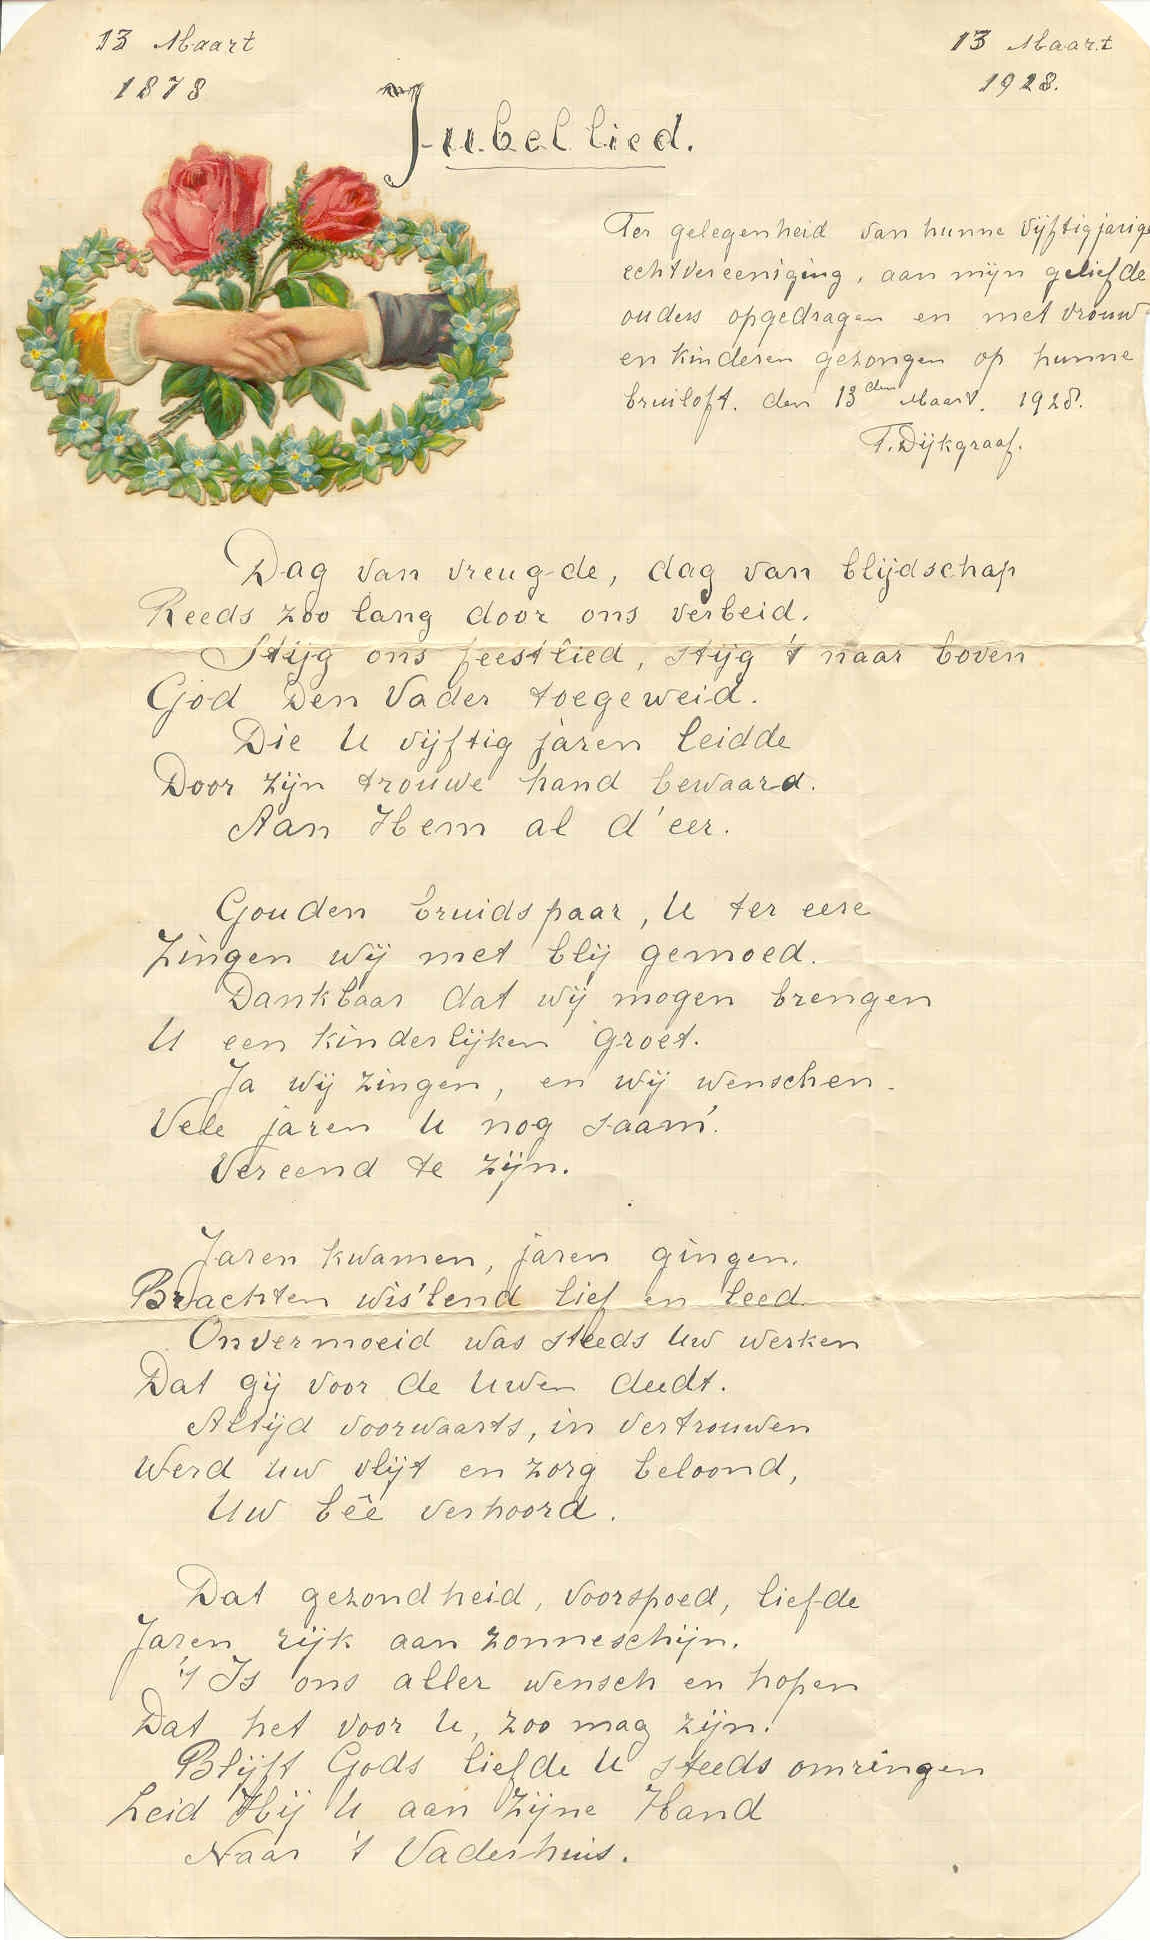 13 Maart
1878
13 Maart
1928.
Jubellied.
Ter gelegenheid van hunne vijftigjarige
echtvereeniging, aan mijn geliefde
ouders opgedragen en met vrouw
en kinderen gezongen op hunne
bruiloft. den 13den Maart. 1928.
T. Dijkgraaf.
Dag van vreugde, dag van blijdschap
Reeds zoo lang door ons verbeid.
Stijg ons feestlied, stijg 't naar boven
God den Vader toegeweid.
Die U vijftig jaren leidde
Door zijn trouwe hand bewaard.
Aan Hem al d'eer.
Gouden bruidspaar, U ter eere
Zingen wij met blij gemoed.
Dankbaar dat wij mogen brengen
U een kinderlijken groet.
Ja wij zingen, en wij wenschen.
Vele jaren U nog saam'.
Vereend te zijn.
Jaren kwamen, jaren gingen.
Brachten wis'lend lief en leed.
Onvermoeid was steeds Uw werken
Dat gij voor de Uwen deedt.
Altijd voorwaarts, in vertrouwen
Werd Uw vlijt en zorg beloond,
Uw beê verhoord.
Dat gezondheid, voorspoed, liefde
Jaren rijk aan zonneschijn.
't Is ons aller wensch en hopen
Dat het voor U, zoo mag zijn.
Blijft Gods liefde U steeds omringen
Leid Hij U aan Zijne Hand
Naar 't Vaderhuis.